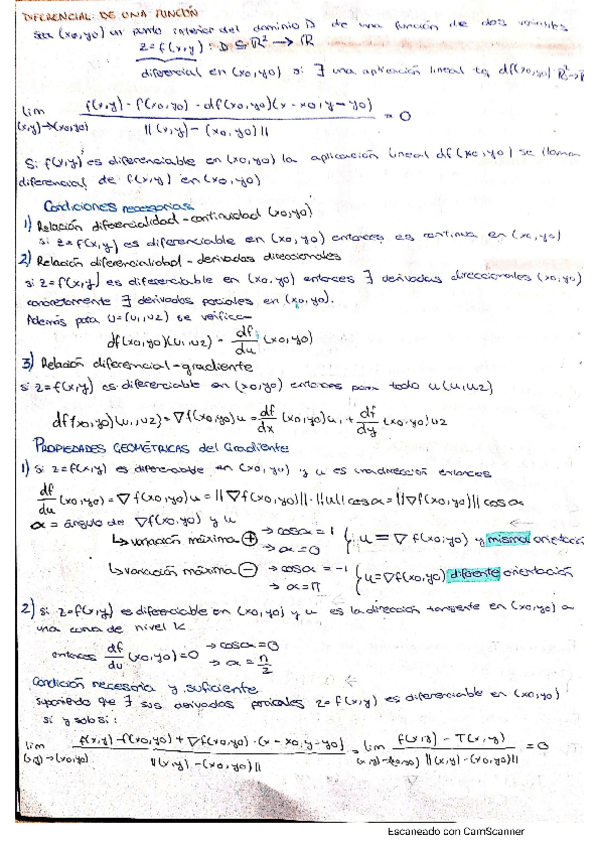 DIFERENCIAL DE UNA FUNCIÓN
Sea (x0,y0) un punto interior del dominio D de una función de dos variables
z=f(x,y): D⊆R² → R
diferencial en (x0,y0) si ∃ una aplicación lineal tq df(x0,y0) R²→R
lim (x,y)→(x0,y0) f(x,y) - f(x0,y0) - df(x0,y0)(x-x0, y-y0) / ||(x,y)-(x0,y0)|| = 0
Si f(x,y) es diferenciable en (x0,y0) la aplicación lineal df(x0,y0) se llama
diferencial de f(x,y) en (x0,y0)
Condiciones necesarias
1) Relación diferencialidad-continuidad (x0,y0)
si z=f(x,y) es diferenciable en (x0,y0) entonces es continua en (x0,y0)
2) Relación diferencialidad-derivadas direccionales
si z=f(x,y) es diferenciable en (x0,y0) entonces ∃ derivadas direccionales (x0,y0)
concretamente ∃ derivadas parciales en (x0,y0).
Además para u=(u1,u2) se verifica
df(x0,y0)(u1,u2) = df/du (x0,y0)
3) Relación diferencial-gradiente
si z=f(x,y) es diferenciable en (x0,y0) entonces para todo u(u1,u2)
df(x0,y0)(u1,u2) = ∇f(x0,y0)u = df/dx (x0,y0)u1 + df/dy (x0,y0)u2
PROPIEDADES GEOMÉTRICAS del Gradiente
1) Si z=f(x,y) es diferenciable en (x0,y0) y u es una dirección entonces
df/du (x0,y0) = ∇f(x0,y0)u = ||∇f(x0,y0)||·||u|| cosα = ||∇f(x0,y0)|| cosα
α = ángulo de ∇f(x0,y0) y u
↳ variación máxima ⊕ → cosα = 1 → α = 0 { u = ∇f(x0,y0) y misma orientación
↳ variación máxima ⊖ → cosα = -1 → α = π { u = ∇f(x0,y0) diferente orientación
2) si z=f(x,y) es diferenciable en (x0,y0) y u es la dirección tangente en (x0,y0) a
una curva de nivel k
entonces df/du (x0,y0)=0 → cosα = 0 → α = π/2
Condición necesaria y suficiente
Suponiendo que ∃ sus derivadas parciales z=f(x,y) es diferenciable en (x0,y0)
si y solo si:
lim (x,y)→(x0,y0) f(x,y)-f(x0,y0)+∇f(x0,y0)·(x-x0, y-y0) / ||(x,y)-(x0,y0)|| = lim (x,y)→(x0,y0) f(x,y) - T(x,y) / ||(x,y)-(x0,y0)|| = 0
Escaneado con CamScanner